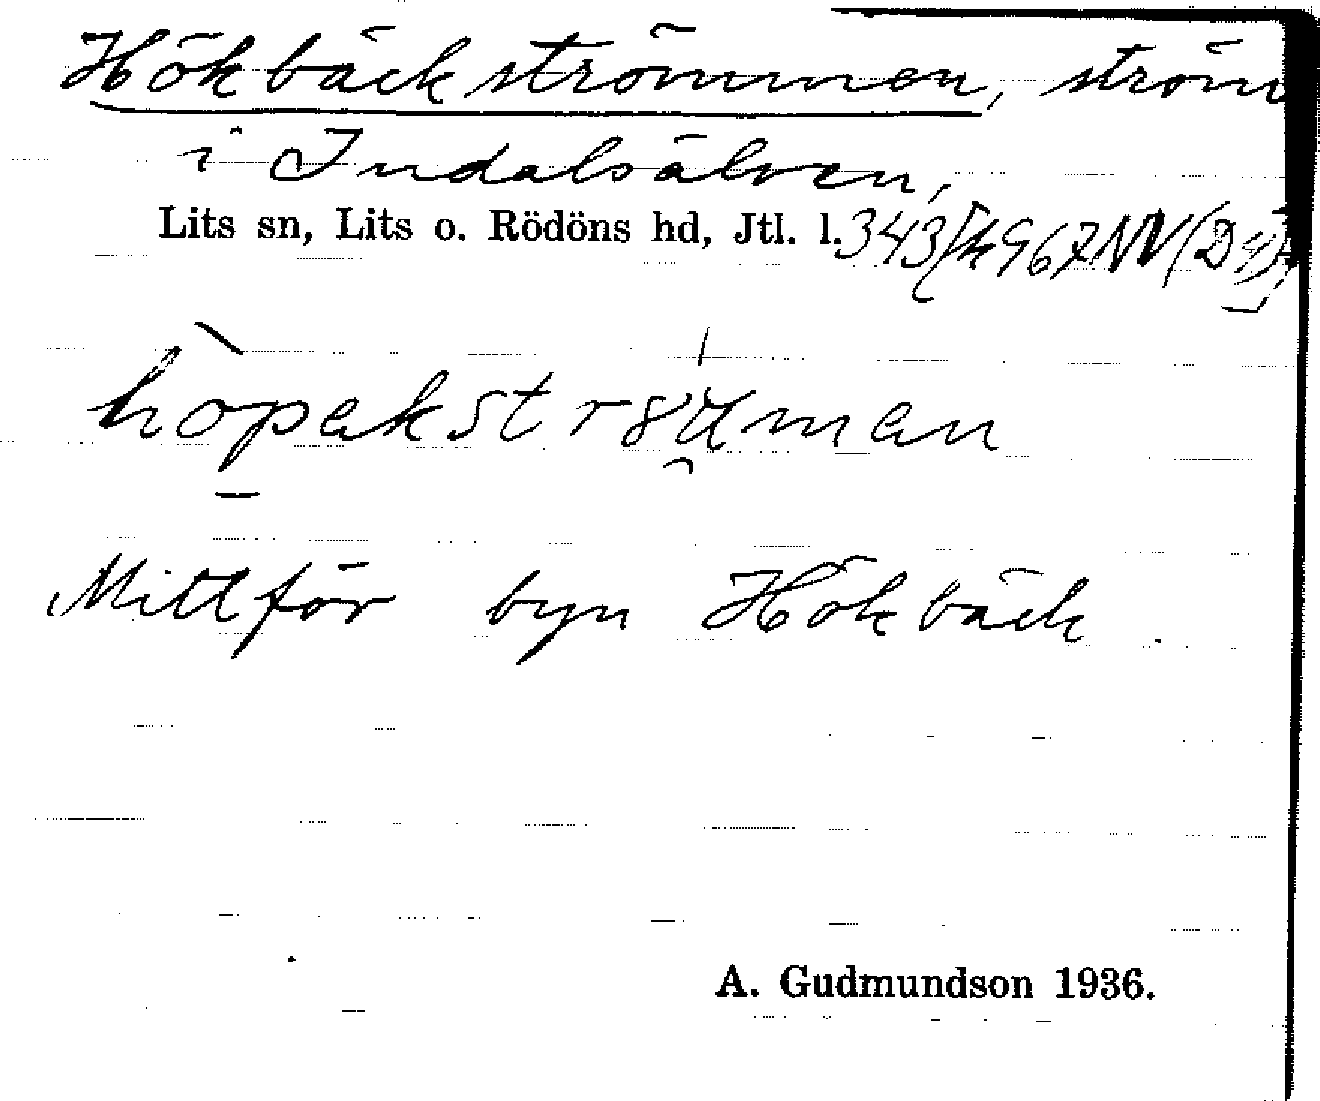 Hökbäckströmmen, ström
i Indalsälven,
Lits sn, Lits o. Rödöns hd, Jtl. l.
hòpekströ̀men
Mitt för byn Hökbäck.
A. Gudmundson 1936.